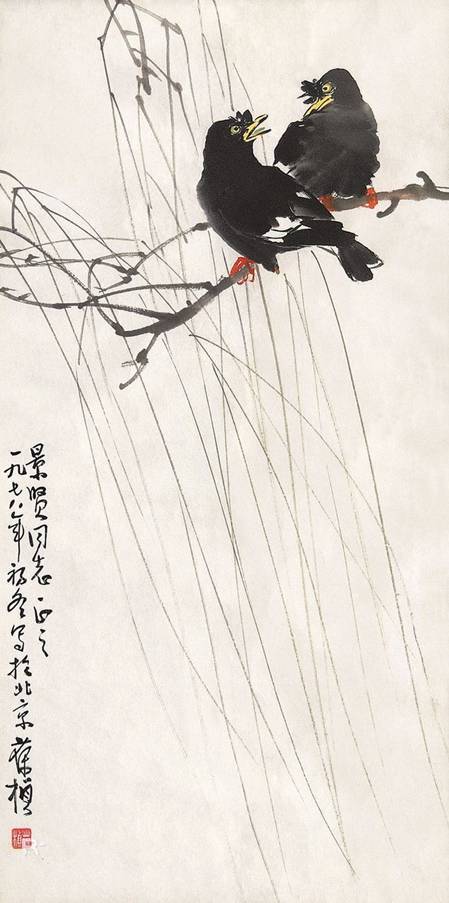 景贤同志正之
一九七八年初冬写于北京 葆桢